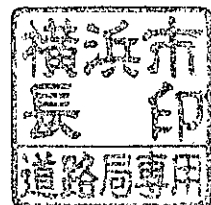 横浜市
長印
道路局専用